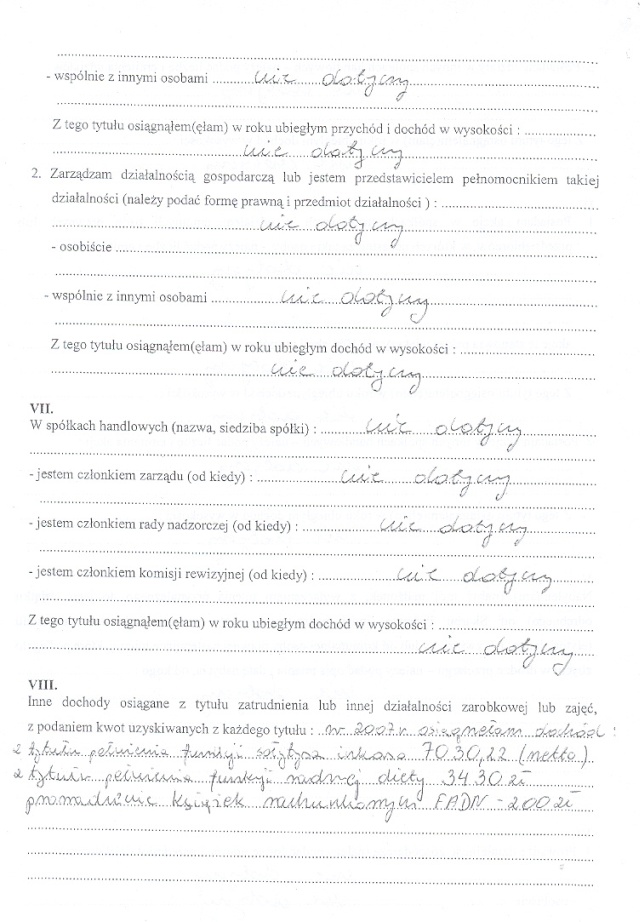 - wspólnie z innymi osobami nie dotyczy
Z tego tytułu osiągnąłem(ęłam) w roku ubiegłym przychód i dochód w wysokości :
nie dotyczy
2. Zarządzam działalnością gospodarczą lub jestem przedstawicielem pełnomocnikiem takiej
działalności (należy podać formę prawną i przedmiot działalności ) :
nie dotyczy
- osobiście
- wspólnie z innymi osobami nie dotyczy
Z tego tytułu osiągnąłem(ęłam) w roku ubiegłym dochód w wysokości :
nie dotyczy
VII.
W spółkach handlowych (nazwa, siedziba spółki) : nie dotyczy
- jestem członkiem zarządu (od kiedy) : nie dotyczy
- jestem członkiem rady nadzorczej (od kiedy) : nie dotyczy
- jestem członkiem komisji rewizyjnej (od kiedy) : nie dotyczy
Z tego tytułu osiągnąłem(ęłam) w roku ubiegłym dochód w wysokości :
nie dotyczy
VIII.
Inne dochody osiągane z tytułu zatrudnienia lub innej działalności zarobkowej lub zajęć,
z podaniem kwot uzyskiwanych z każdego tytułu : w 2007 r. osiągnęłam dochód :
z tytułu pełnienia funkcji sołtysa inkaso 7030,22 (netto)
z tytułu pełnienia funkcji radnej diety 3430 zł
prowadzenie książek rachunkowych FADN - 200 zł